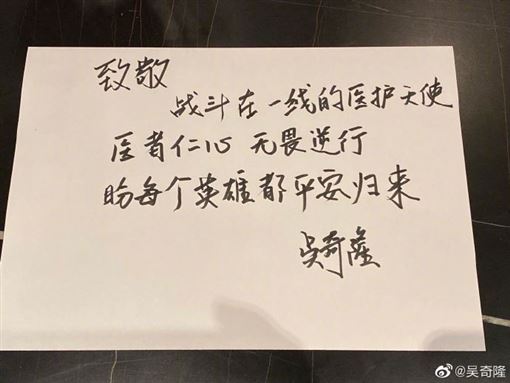 致敬
战斗在一线的医护天使
医者仁心 无畏逆行
盼每个英雄都平安归来
吴奇隆
@吴奇隆